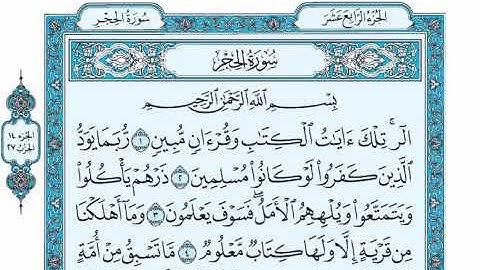 الجزء الرابع عشر
سورة الحجر
سورة الحجر
بسم الله الرحمن الرحيم
الٓرۚ تِلْكَ ءَايَٰتُ ٱلْكِتَٰبِ وَقُرْءَانٍ مُّبِينٍ ١ رُّبَمَا يَوَدُّ
ٱلَّذِينَ كَفَرُوا۟ لَوْ كَانُوا۟ مُسْلِمِينَ ٢ ذَرْهُمْ يَأْكُلُوا۟
وَيَتَمَتَّعُوا۟ وَيُلْهِهِمُ ٱلْأَمَلُ ۖ فَسَوْفَ يَعْلَمُونَ ٣ وَمَآ أَهْلَكْنَا
مِن قَرْيَةٍ إِلَّا وَلَهَا كِتَابٌ مَّعْلُومٌ ٤ مَّا تَسْبِقُ مِنْ أُمَّةٍ
الجزء ١٤
الحزب ٢٧